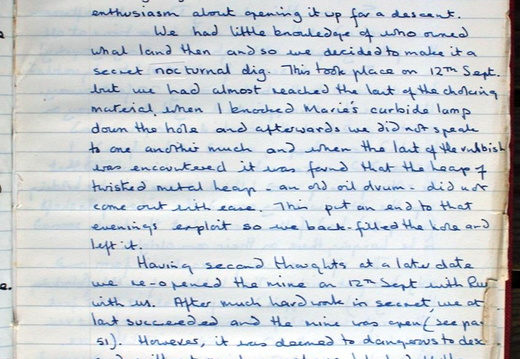 enthusiasm about opening it up for a descent.
We had little knowledge of who owned
what land then and so we decided to make it a
secret nocturnal dig. This took place on 12TH Sept.
but we had almost reached the last of the choking
material when I knocked Marie's carbide lamp
down the hole and afterwards we did not speak
to one another much and when the last of the rubbish
was encountered it was found that the heap of
twisted metal heap - an old oil drum - did not
come out with ease. This put an end to that
evenings exploit so we back-filled the hole and
left it.
Having second thoughts at a later date
we re-opened the mine on 12TH Sept with
with us. After much hard work in secret, we at
last succeeded and the mine was open (see pa-
51). However, it was deemed to dangerous to